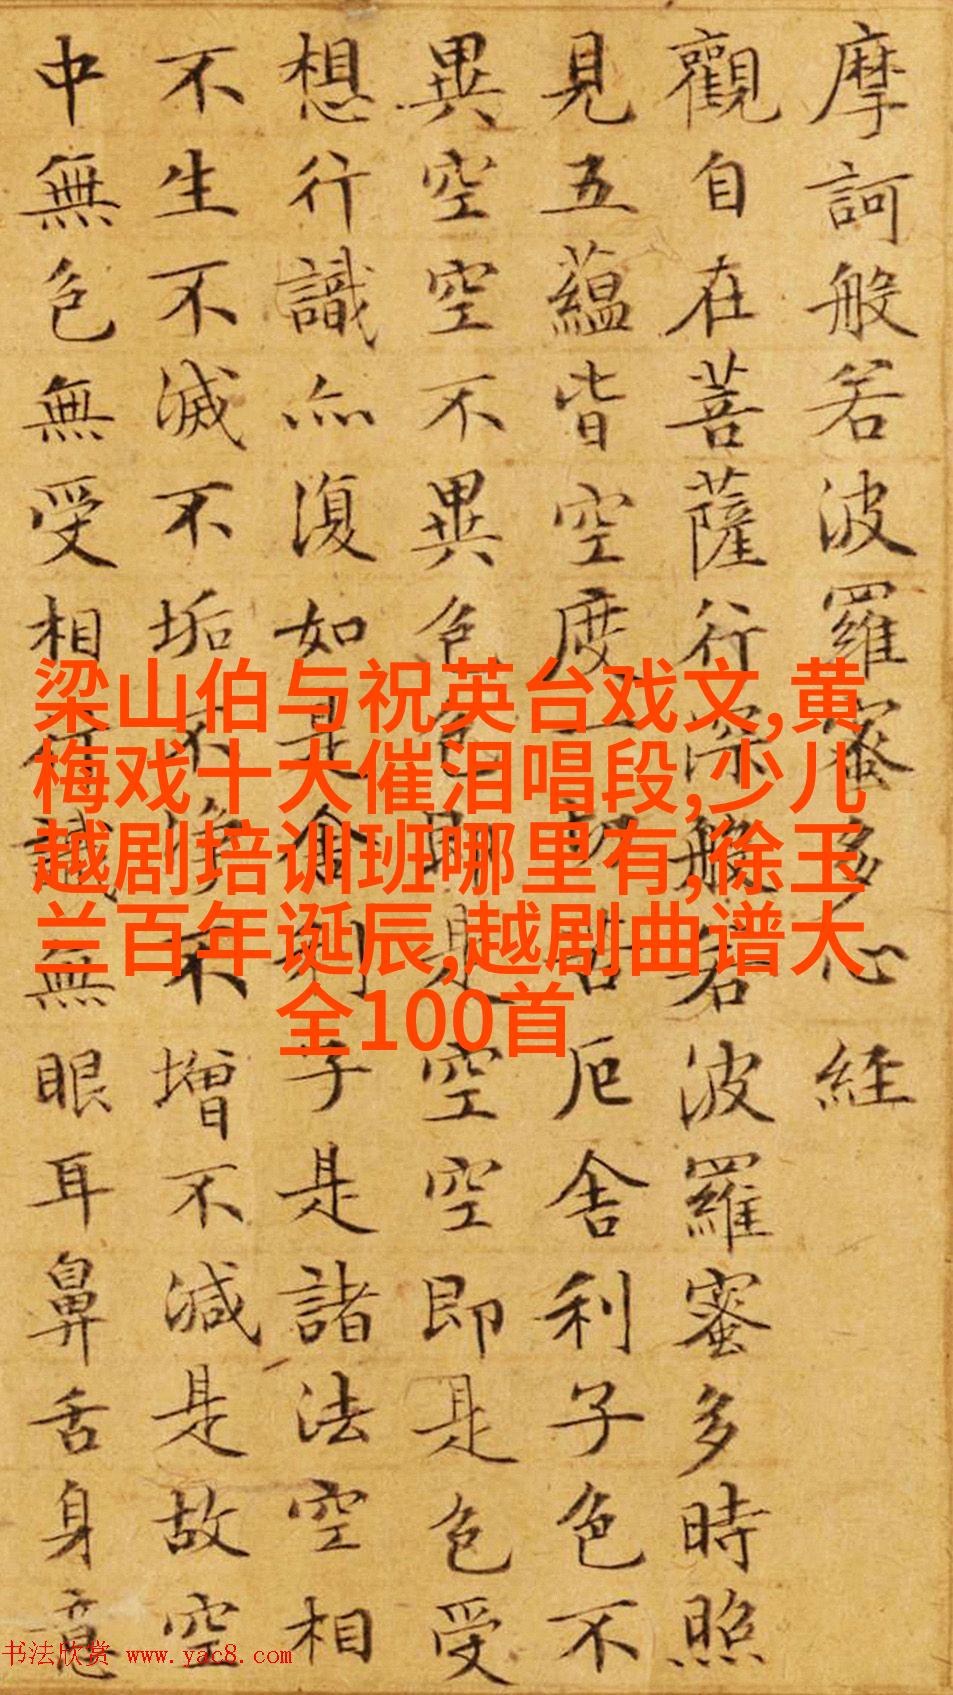 摩訶般若波羅蜜多心經
觀自在菩薩行深般若波羅蜜多時照
見五蘊皆空度一切苦厄舍利子色不
異空空不異色色即是空空即是色受
想行識亦復如是舍利子是諸法空相
不生不滅不垢不淨不增不減是故空
中無色無受相行識無眼耳鼻舌身意
梁山伯与祝英台戏文,黄
梅戏十大催泪唱段,少儿
越剧培训班哪里有,徐玉
兰百年诞辰,越剧曲谱大
全100首
书法欣赏 www.yac8.com